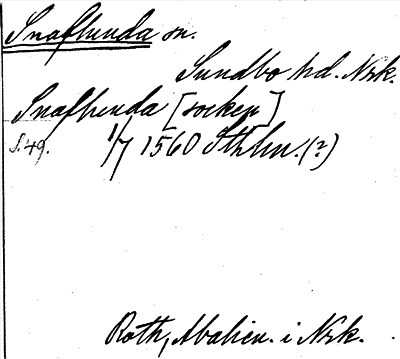 Snaflunda sn.
Sundbo hd. Nrk.
Snaflunda [socken]
S. 49. 1/7 1560 Sthlm. (?)
Roth, Abalien. i Nrk.